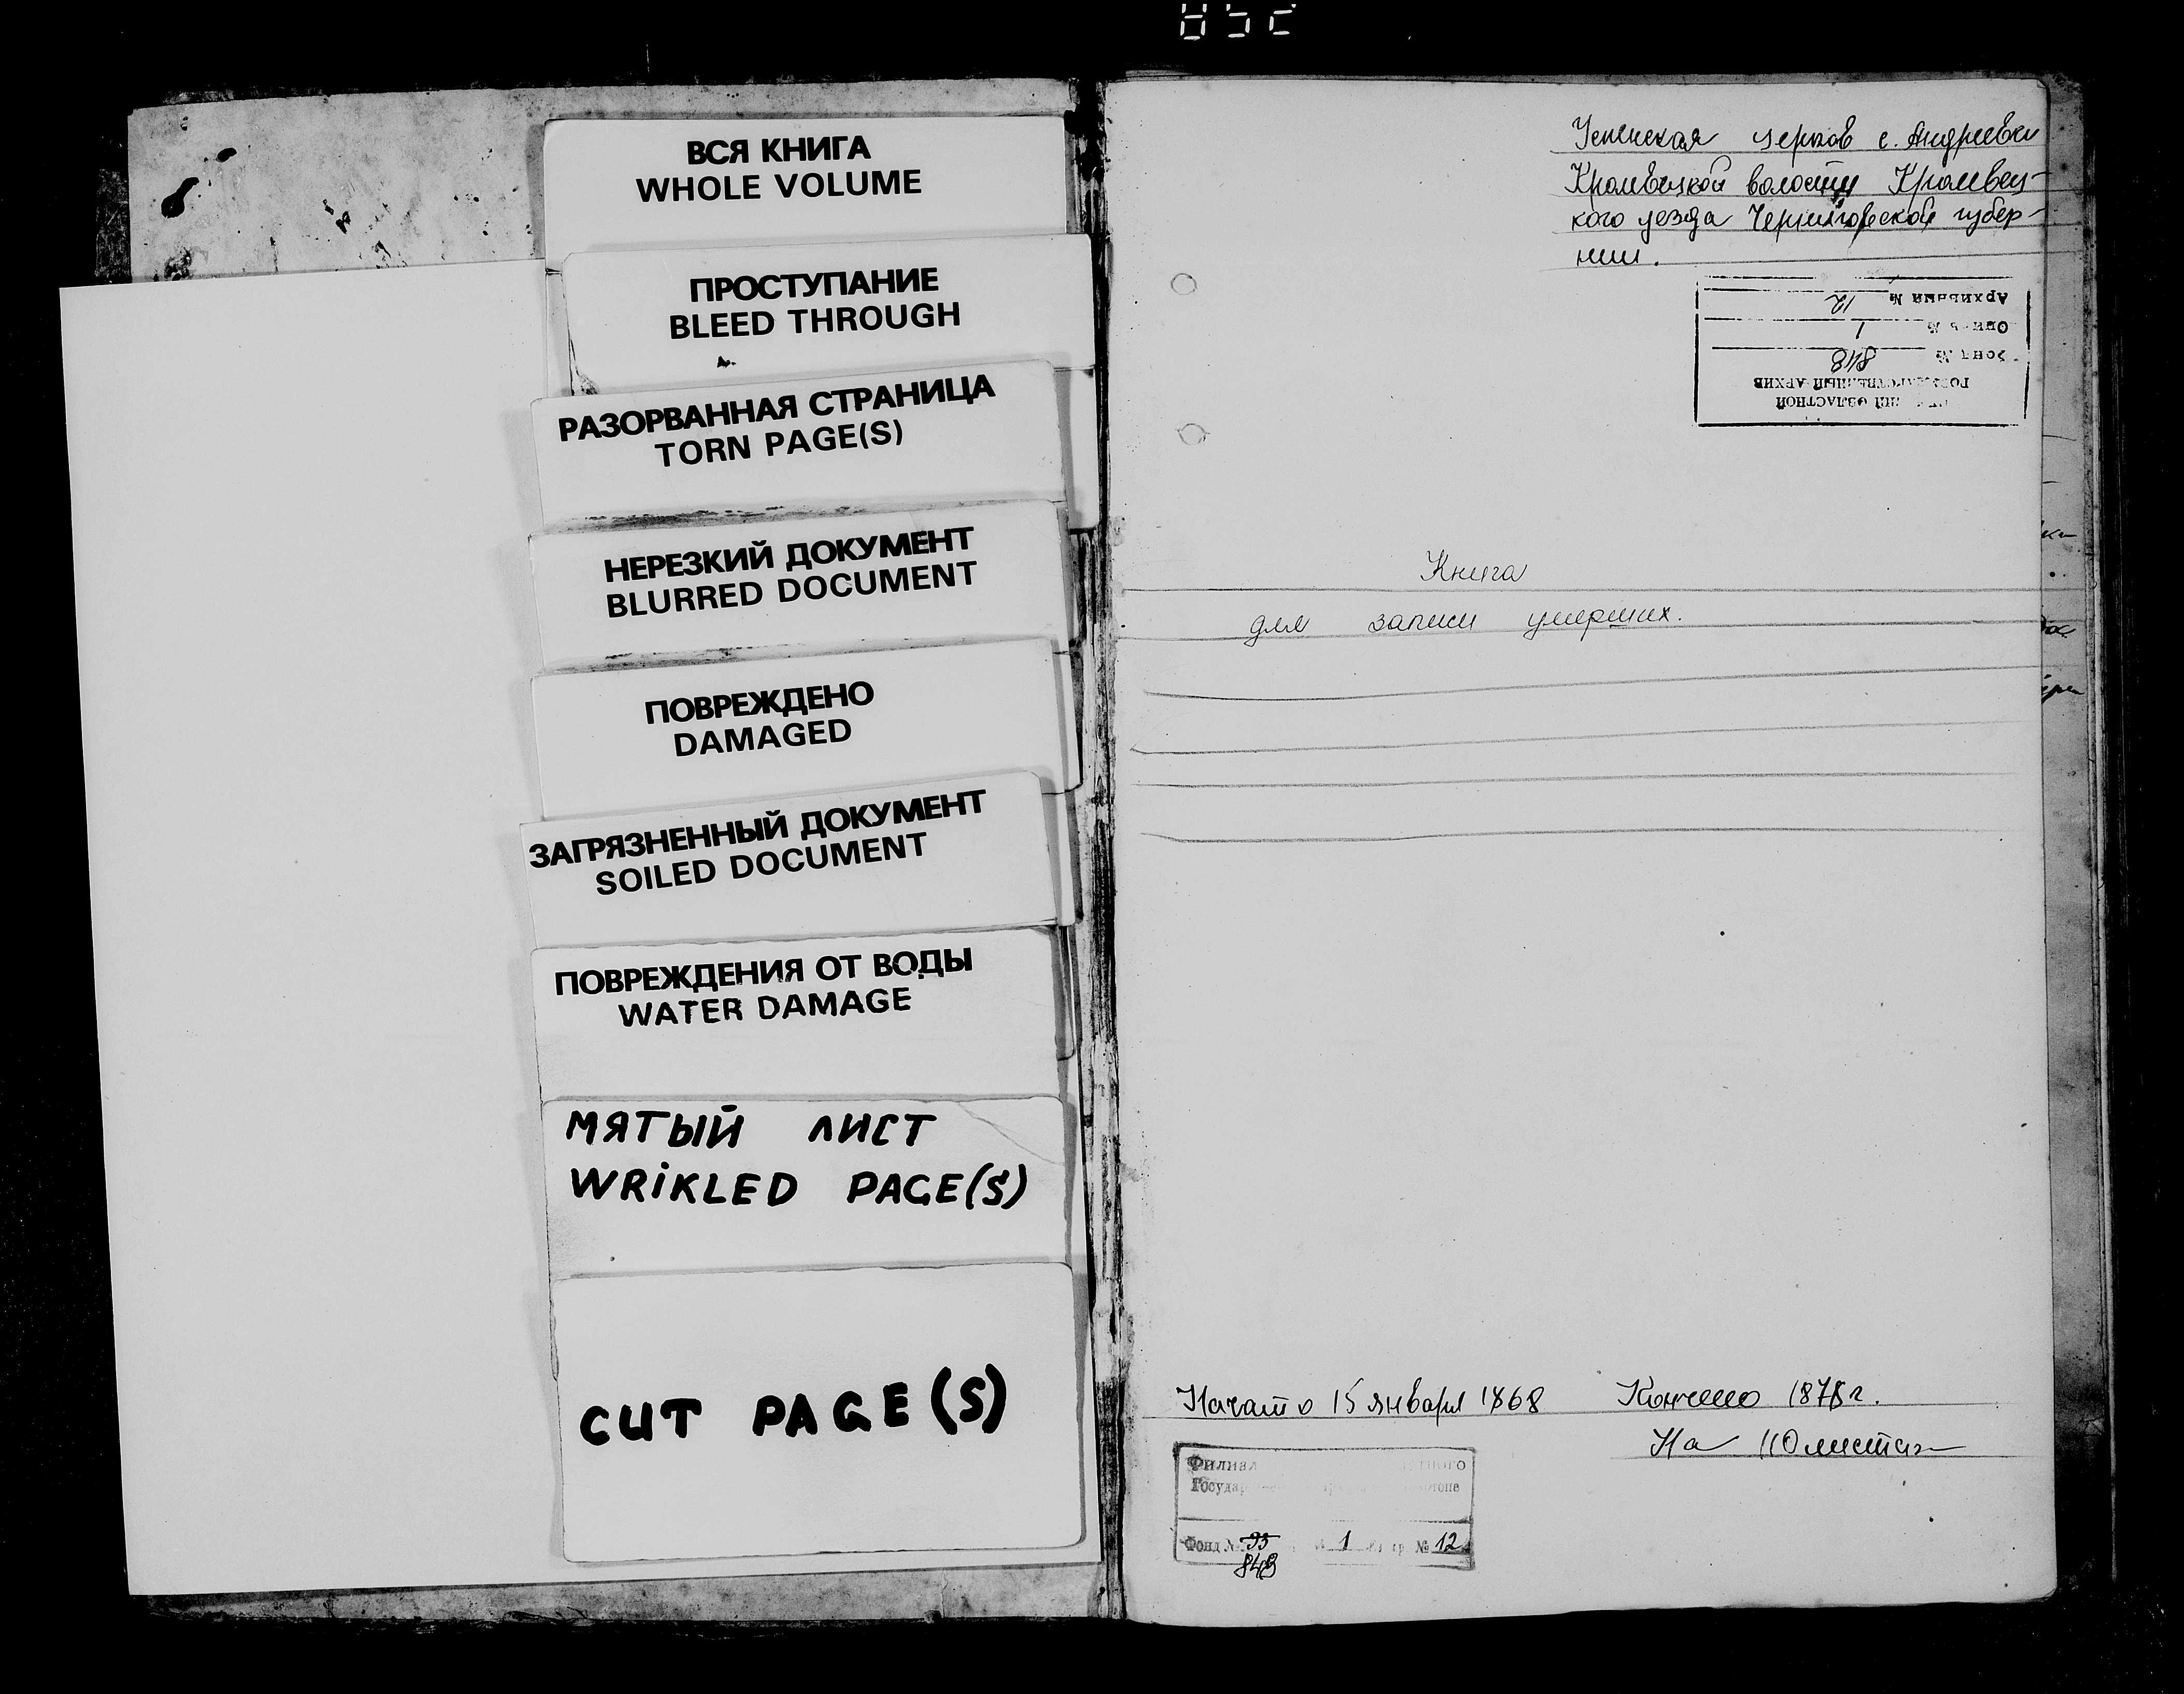 ВСЯ КНИГА
WHOLE VOLUME
ПРОСТУПАНИЕ
BLEED THROUGH
РАЗОРВАННАЯ СТРАНИЦА
TORN PAGE(S)
НЕРЕЗКИЙ ДОКУМЕНТ
BLURRED DOCUMENT
ПОВРЕЖДЕНО
DAMAGED
ЗАГРЯЗНЕННЫЙ ДОКУМЕНТ
SOILED DOCUMENT
ПОВРЕЖДЕНИЯ ОТ ВОДЫ
WATER DAMAGE
МЯТЫЙ ЛИСТ
WRIKLED PAGE(S)
CUT PAGE(S)
Успенская церковь с. Андреевки
Кролевецкой волости Кролевец-
кого уезда Черниговской губер-
нии.
ОБЛАСТНОЙ
ГОСУДАРСТВЕННЫЙ АРХИВ
Фонд № 848
Опись № 1
Архивный № 12
Книга
для записи умерших.
Начато 15 января 1868 Кончено 1878 г.
На 110 листах
Филиал
Фонд № 93 1 № 12
848